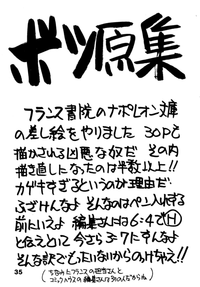 ボツ原集
フランス書院のナポレオン文庫
の差し絵をやりました 30Pと
描かされる凶悪な奴だ その内
描き直しになったのは半数以上!!
がげすぎるというのが理由だ
ふざけんなよ そんなのはペン入れする
前にいえよ 編集さんは6:4でⒽ
と伝えといて 今さら3:7にすんなよ
そんな訳でもったいないからのっけちゃえ!!
コミックハウスの編集さんは別の人だからね
35